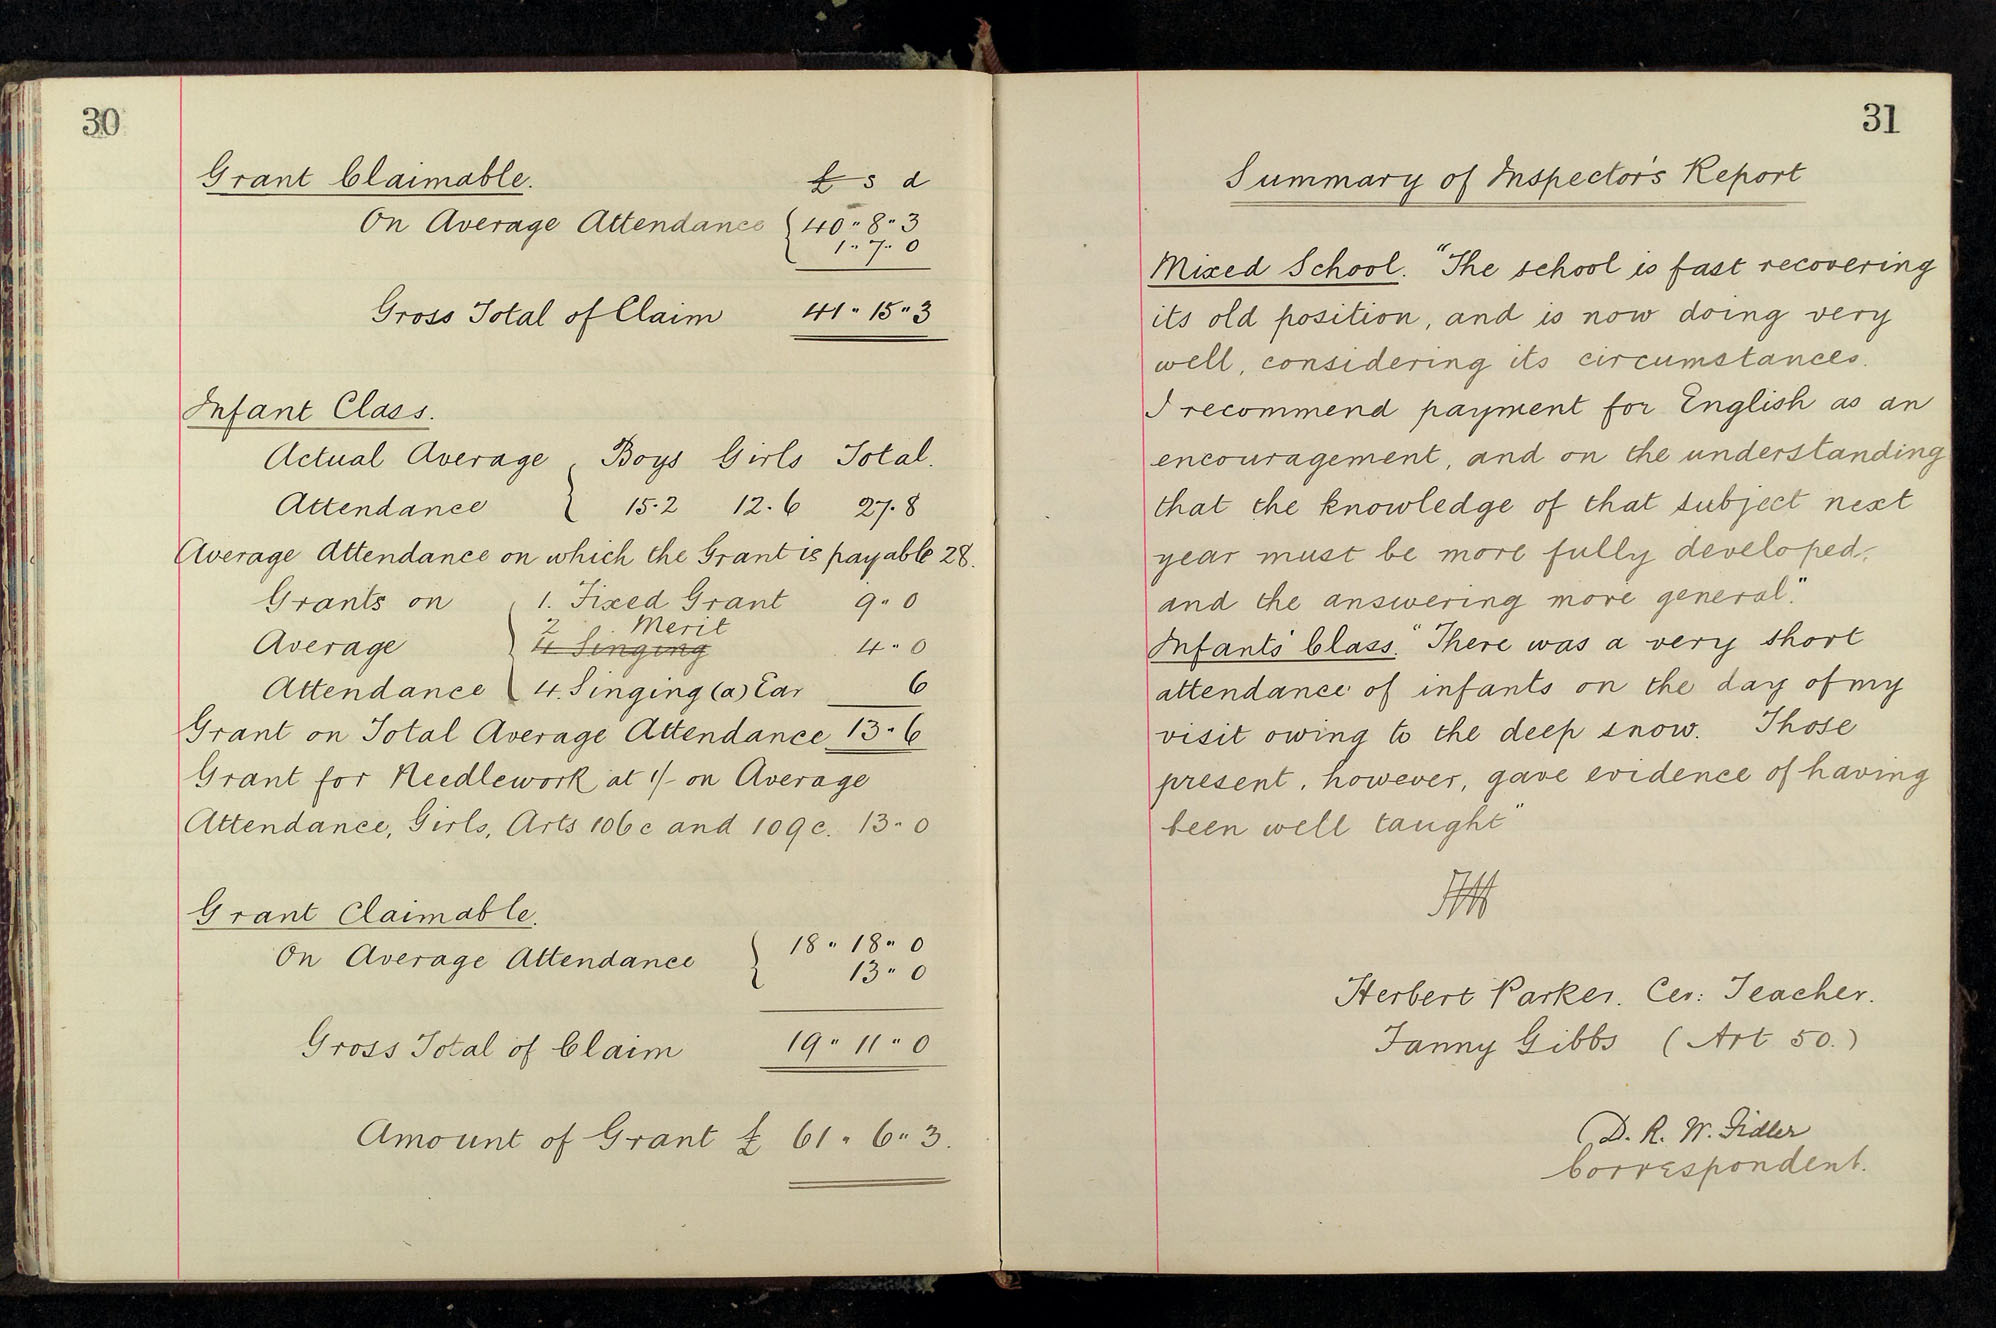 30
Grant Claimable. £ s d
On Average Attendance { 40 " 8 " 3
1 " 7 " 0
Gross Total of Claim 41 " 15 " 3
Infant Class.
Actual Average Boys Girls Total.
Attendance { 15.2 12.6 27.8
Average Attendance on which the Grant is payable 28.
Grants on 1. Fixed Grant 9 " 0
2 Merit
Average 4 Singing 4 " 0
Attendance 4. Singing (a) Ear 6
Grant on Total Average Attendance 13 " 6
Grant for Needlework at 1/- on Average
Attendance, Girls, Arts 106c and 109c. 13 " 0
Grant Claimable.
On Average Attendance { 18 " 18 " 0
13 " 0
Gross Total of Claim 19 " 11 " 0
Amount of Grant £ 61 " 6 " 3.
31
Summary of Inspector's Report
Mixed School. "The school is fast recovering
its old position, and is now doing very
well, considering its circumstances.
I recommend payment for English as an
encouragement, and on the understanding
that the knowledge of that subject next
year must be more fully developed,
and the answering more general."
Infants' Class. "There was a very short
attendance of infants on the day of my
visit owing to the deep snow. Those
present, however, gave evidence of having
been well taught"
Herbert Parker. Cer: Teacher.
Fanny Gibbs (Art 50.)
D. R. W. Fidler
Correspondent.